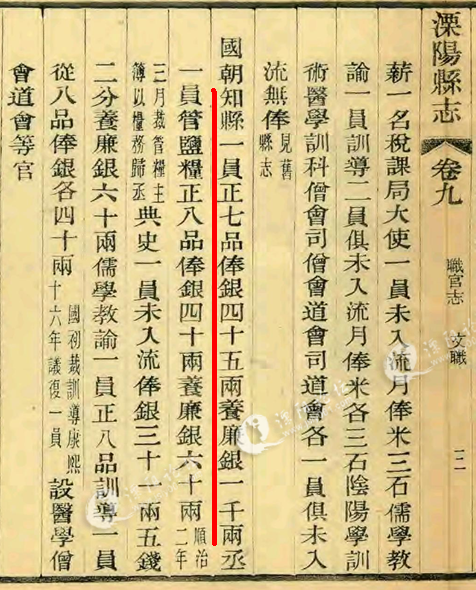 溧陽縣志
卷九
職官志 文職
二
薪一名稅課局大使一員未入流月俸米三石儒學教
諭一員訓導二員俱未入流月俸米各三石陰陽學訓
術醫學訓科僧會司僧會道會司道會各一員俱未入
流無俸見舊縣志
國朝知縣一員正七品俸銀四十五兩養廉銀一千兩丞
一員管鹽糧正八品俸銀四十兩養廉銀六十兩順治二年
三月裁管糧主簿以糧務歸丞典史一員未入流俸銀三十一兩五錢
二分養廉銀六十兩儒學教諭一員正八品訓導一員
從八品俸銀各四十兩國初裁訓導康熙十六年議復一員設醫學僧
會道會等官